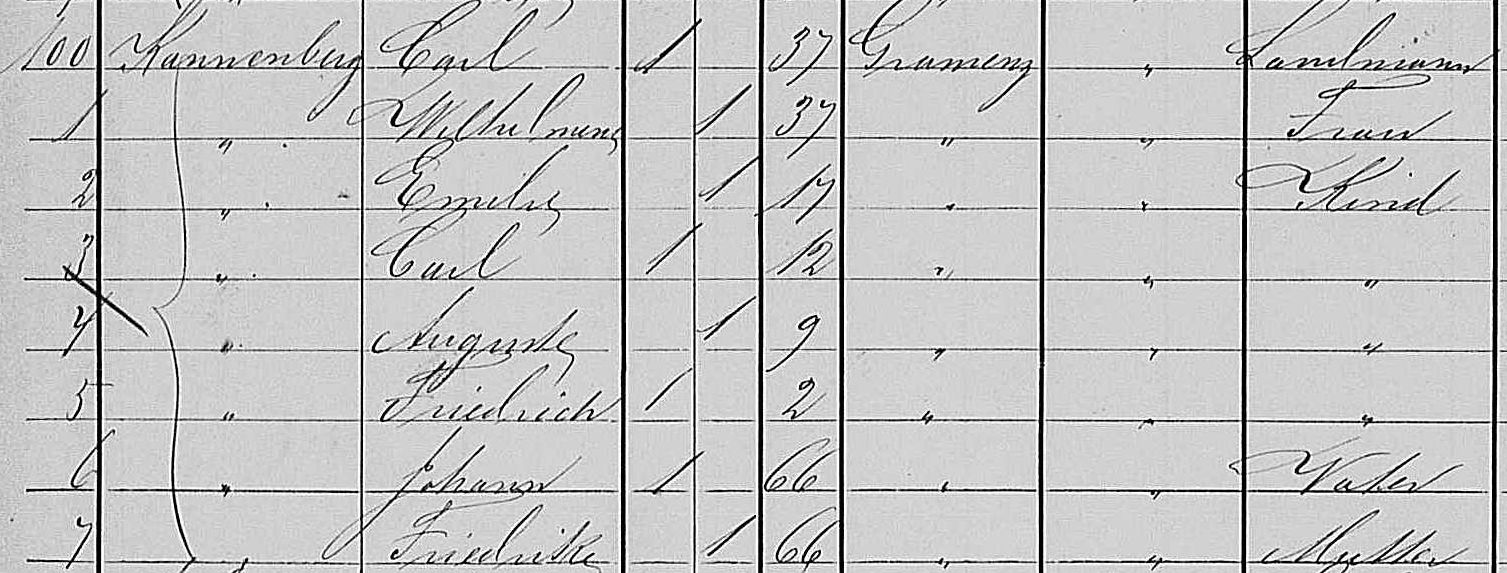 100 Kannenberg Carl 1 37 Gramenz " Landmann
1 " Wilhelmine 1 37 " " Frau
2 " Emilie 1 17 " " Kind
3 " Carl 1 12 " " "
4 " Auguste 1 9 " " "
5 " Friedrich 1 2 " " "
6 " Johann 1 66 " " Vater
7 " Friedrike 1 66 " " Mutter